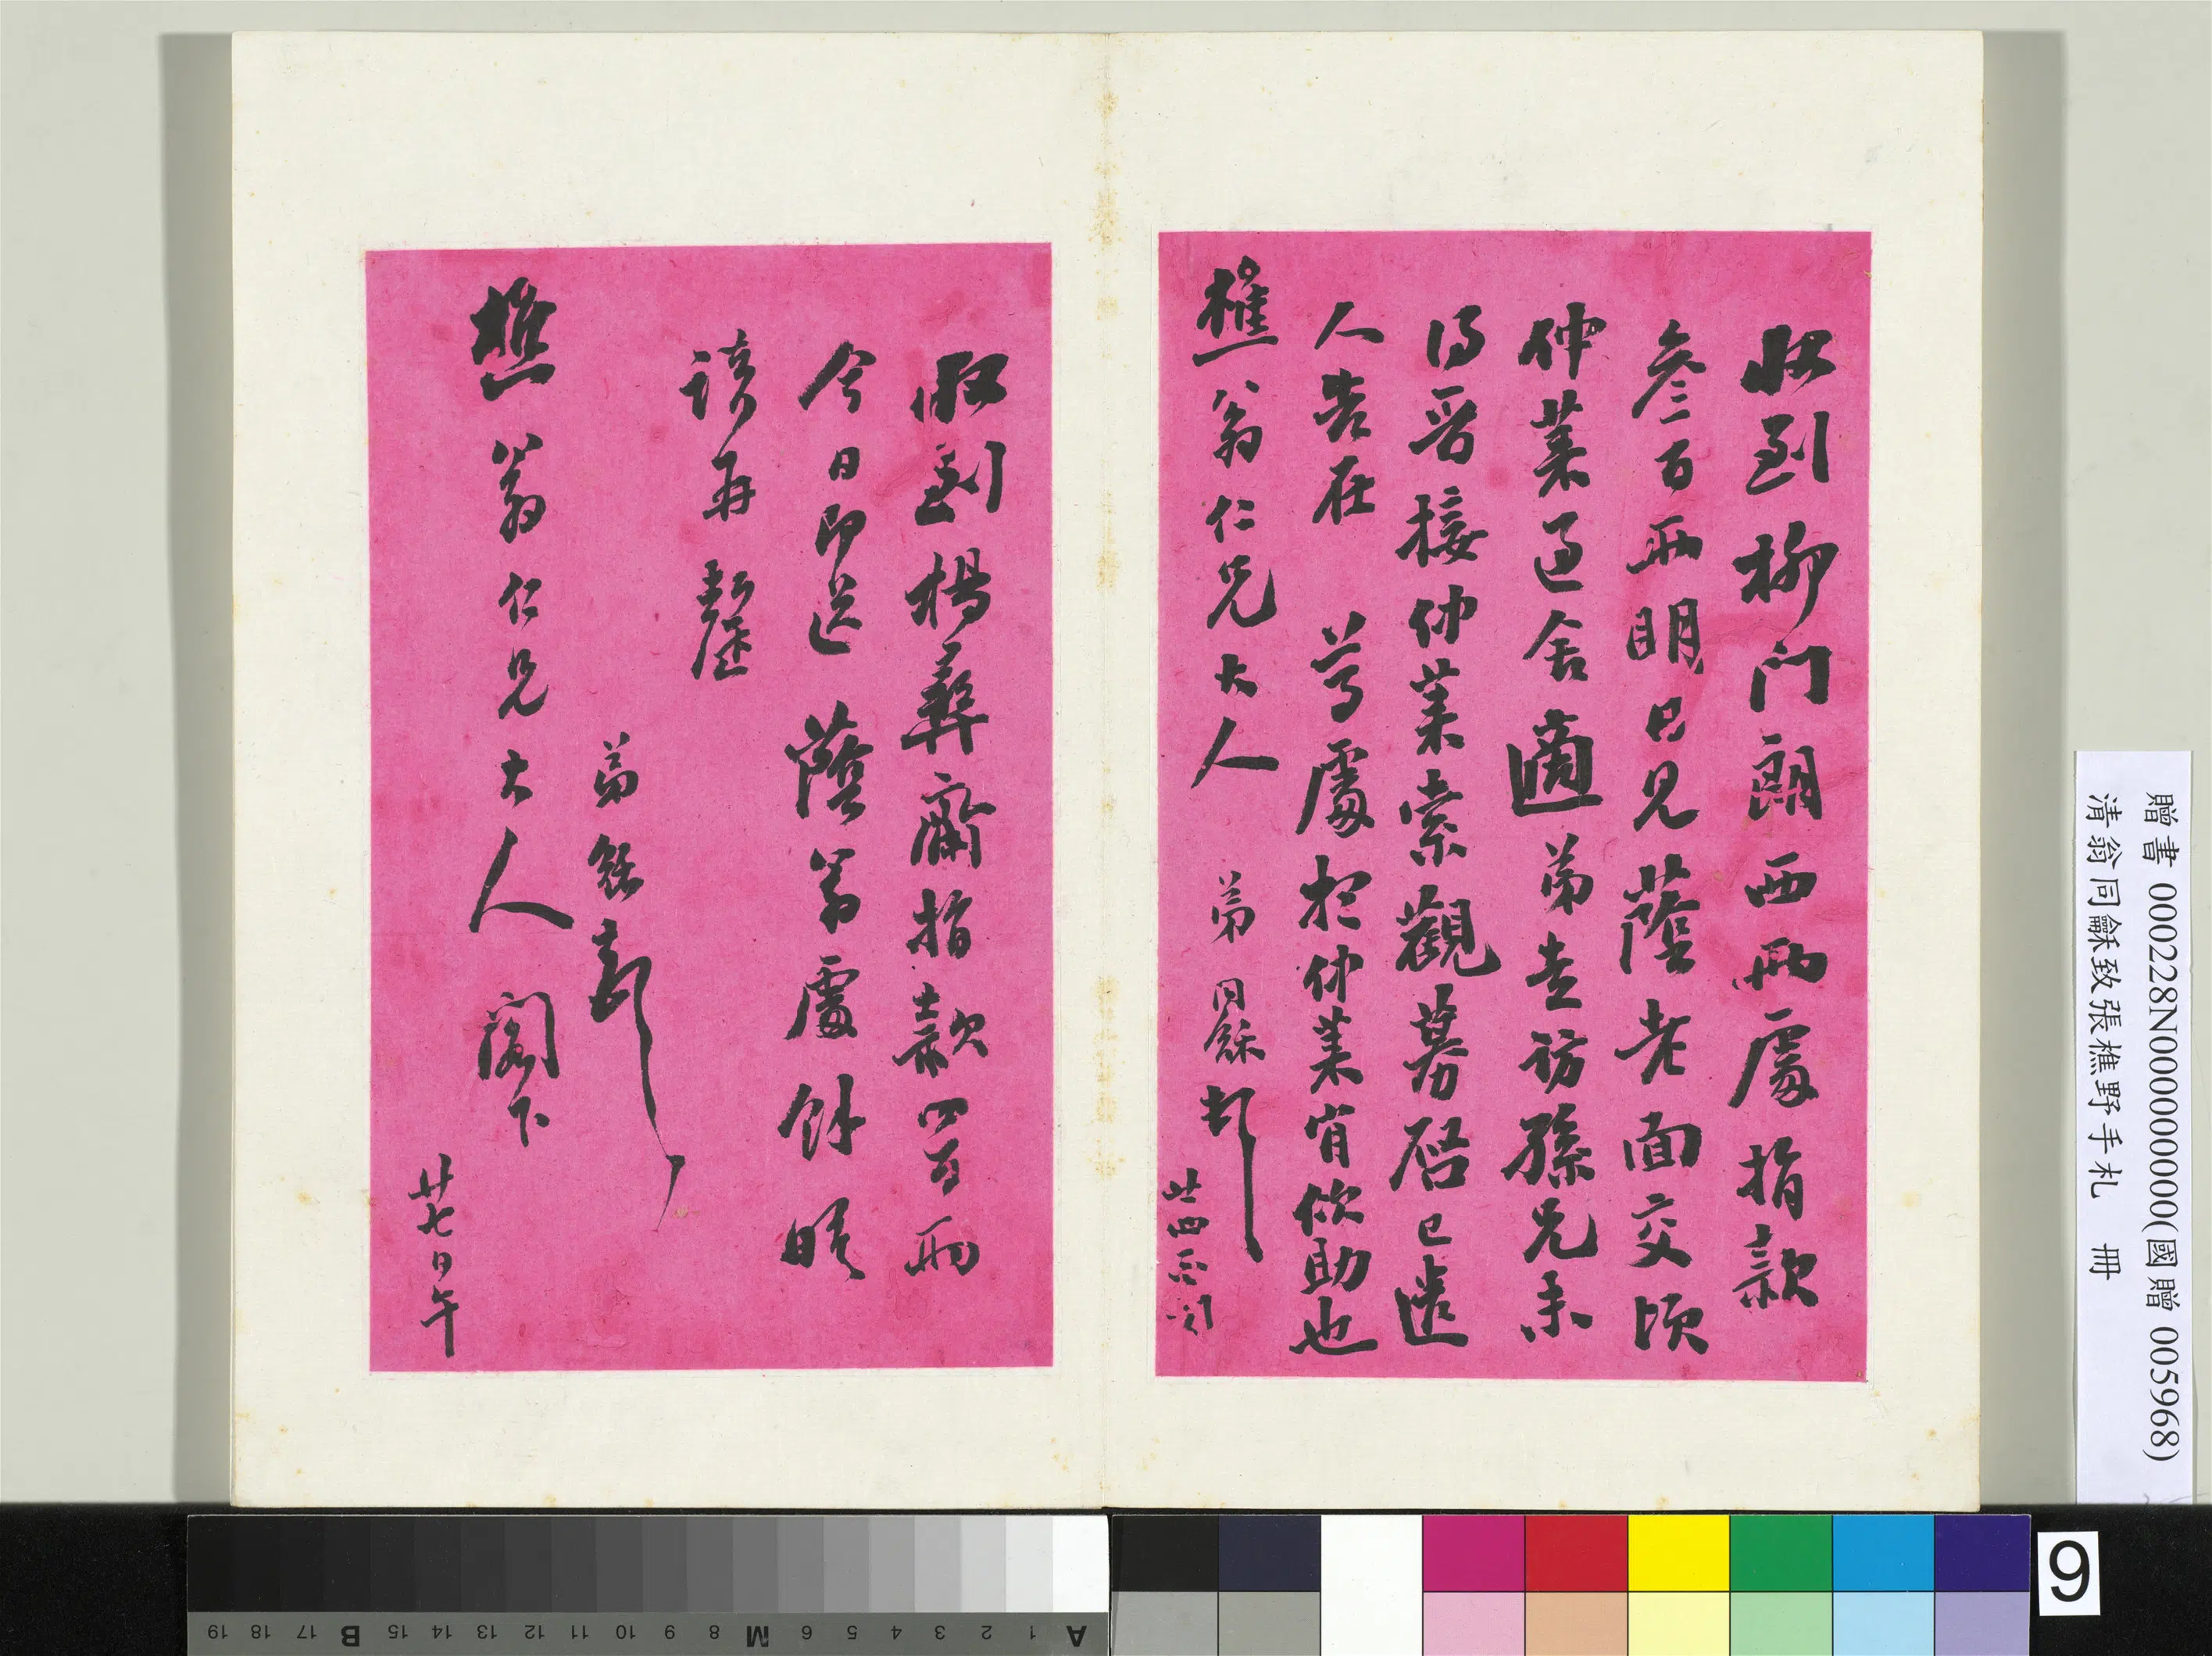 收到柳門朗西兩處捐款
叁百兩明日見蔭老面交頃
仲萊過舍適弟走訪孫兄未
得晉接仲萊索觀募啓已送
人告在　尊處想仲萊肯欣助也
樵翁仁兄大人
弟同龢頓
廿四
收到楊彝齋捐款四百兩
今日即送　蔭翁處餘晤
談再罄
弟龢頓
樵翁仁兄大人閣下
廿七日午
贈書 000228N000000000(國贈 005968)
清翁同龢致張樵野手札　冊
A 1 2 3 4 5 6 M 8 9 10 11 12 13 14 15 B 17 18 19
9